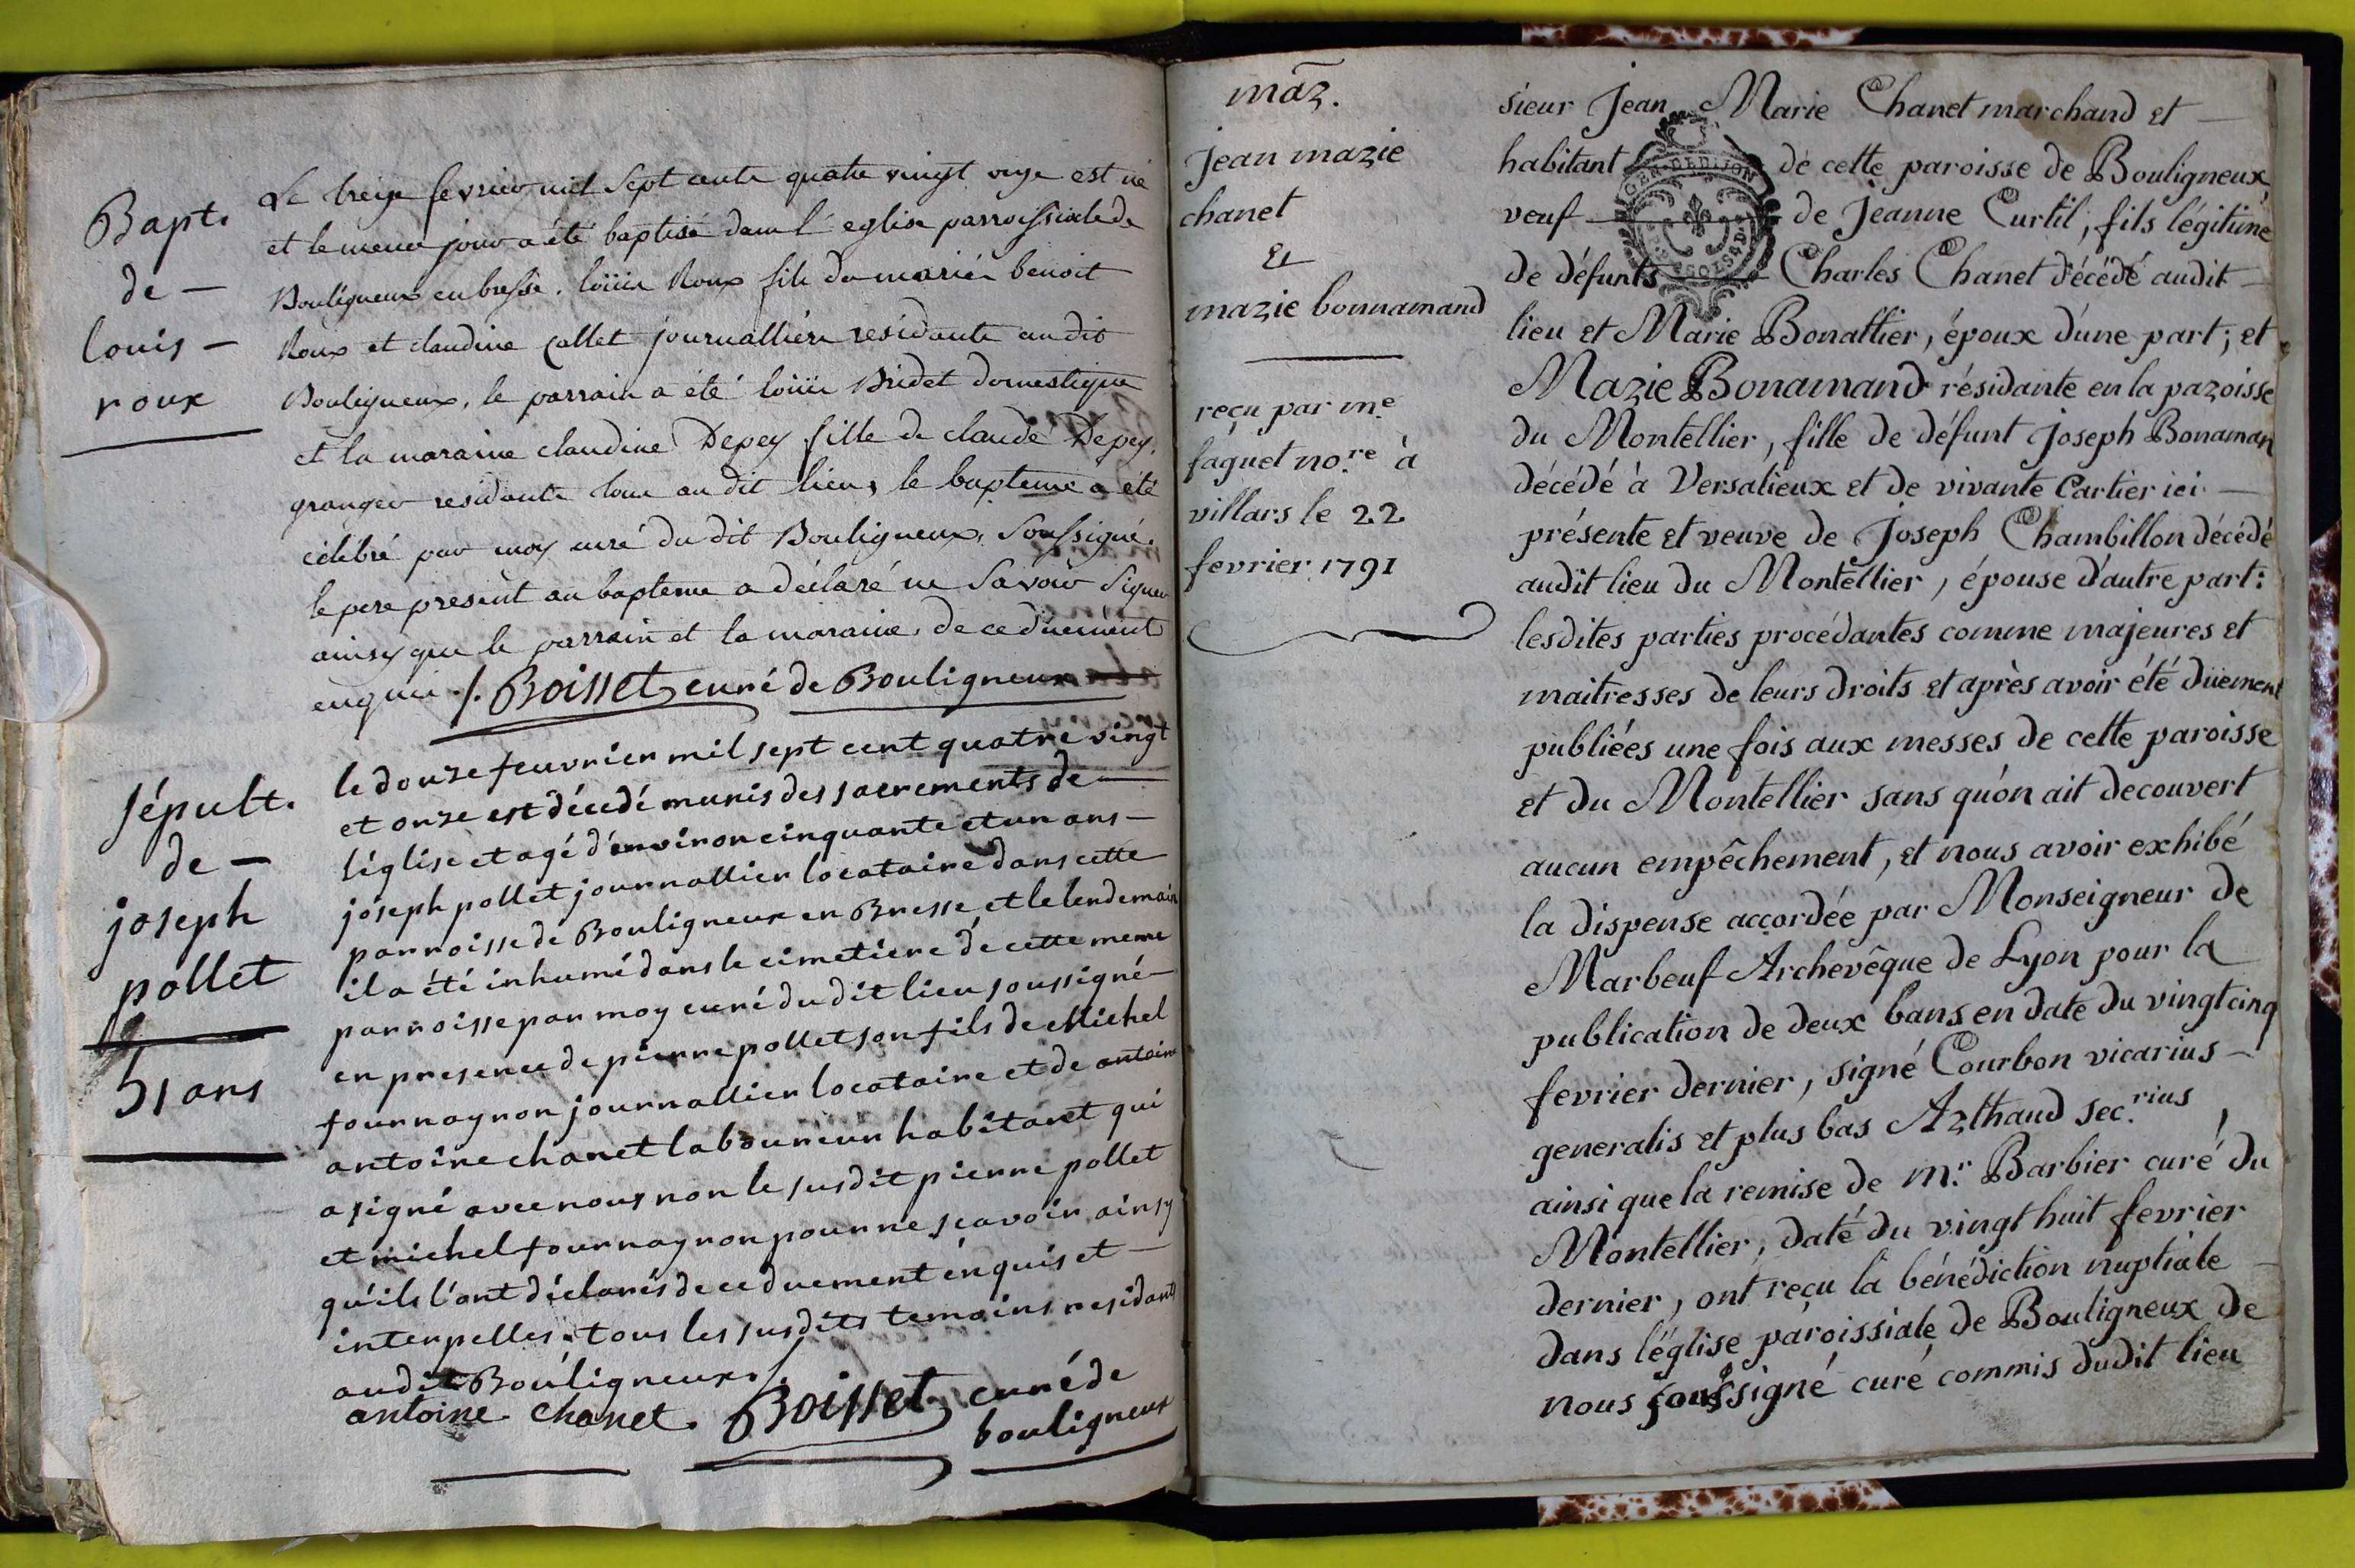 Bapt.
de —
louis —
roux
Le treize fevrier mil sept cents quatre vingt onze est né
et le meme jour a été baptisé dans l'eglise parroissiale de
Bouligneux en bresse, loüis Roux fils de mariés benoit
Roux et claudine collet journalliers residants au dit
Bouligneux, le parrain a été loüis Bridet domestique
et la maraine claudine Depey fille de claude Depey,
granger residants tous au dit lieu, le bapteme a été
célébré par moy curé du dit Bouligneux, soussigné.
le pere present au bapteme a déclaré ne savoir signer
ainsy que le parrain et la maraine, de ce düement
enquis ./. Boisset curé de Bouligneux
sépult.
de —
joseph
pollet
51 ans
le douze feuvrier mil sept cent quatre vingt
et onze est décedé munis des sacrements de —
l'église et agé d'environ cinquante et un ans —
joseph pollet journallier locataire dans cette
parroisse de Bouligneux en Bresse, et le lendemain
il a été inhumé dans le cimetiere de cette meme
parroisse par moy curé du dit lieu soussigné —
en presence de pierre pollet son fils de Michel
fournaynon journallier locataire et de antoine
antoine chanet laboureur habitant qui
a signé avec nous non le susdit pierre pollet
et michel fournaynon pour ne sçavoir ainsy
qu'ils l'ont déclarés de ce duement énquis et —
interpelles. tous les susdits temoins residants
audit Bouligneux ./.
antoine chanet. Boisset curé de
bouligneux
mar.
Jean marie
chanet
Et
marie bonnamand
reçu par me
faguet no.re à
villars le 22
fevrier 1791
sieur Jean Marie Chanet marchand et —
habitant de cette paroisse de Bouligneux,
veuf — de Jeanne Curtil, fils légitime
de défunts — Charles Chanet décédé audit —
lieu et Marie Bonattier, époux d'une part; et
Marie Bonamand résidante en la paroisse
du Montellier, fille de défunt Joseph Bonaman
décédé à Versalieux et de vivante Cartier ici —
présente et veuve de Joseph Chambillon décédé
audit lieu du Montellier, épouse d'autre part:
lesdites parties procédantes comme majeures et
maitresses de leurs droits et après avoir été düement
publiées une fois aux messes de cette paroisse
et du Montellier sans qu'on ait decouvert
aucun empêchement, et nous avoir exhibé
la dispense accordée par Monseigneur de
Marbeuf Archevêque de Lyon pour la
publication de deux bans en date du vingt cinq
fevrier dernier, signé Courbon vicarius —
generalis et plus bas Arthaud sec.rius,
ainsi que la remise de mr. Barbier curé du
Montellier, daté du vingt huit fevrier
dernier, ont reçu la bénédiction nuptiale —
dans l'église paroissiale de Bouligneux de
nous soussigné curé commis dudit lieu